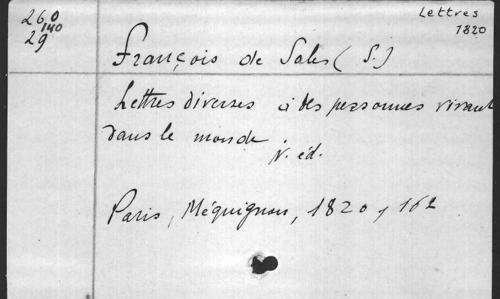 260
140
29
Lettres
1820
François de Sales (S.)
Lettres diverses à des personnes vivant
dans le monde
N. éd.
Paris, Méquignon, 1820, 162